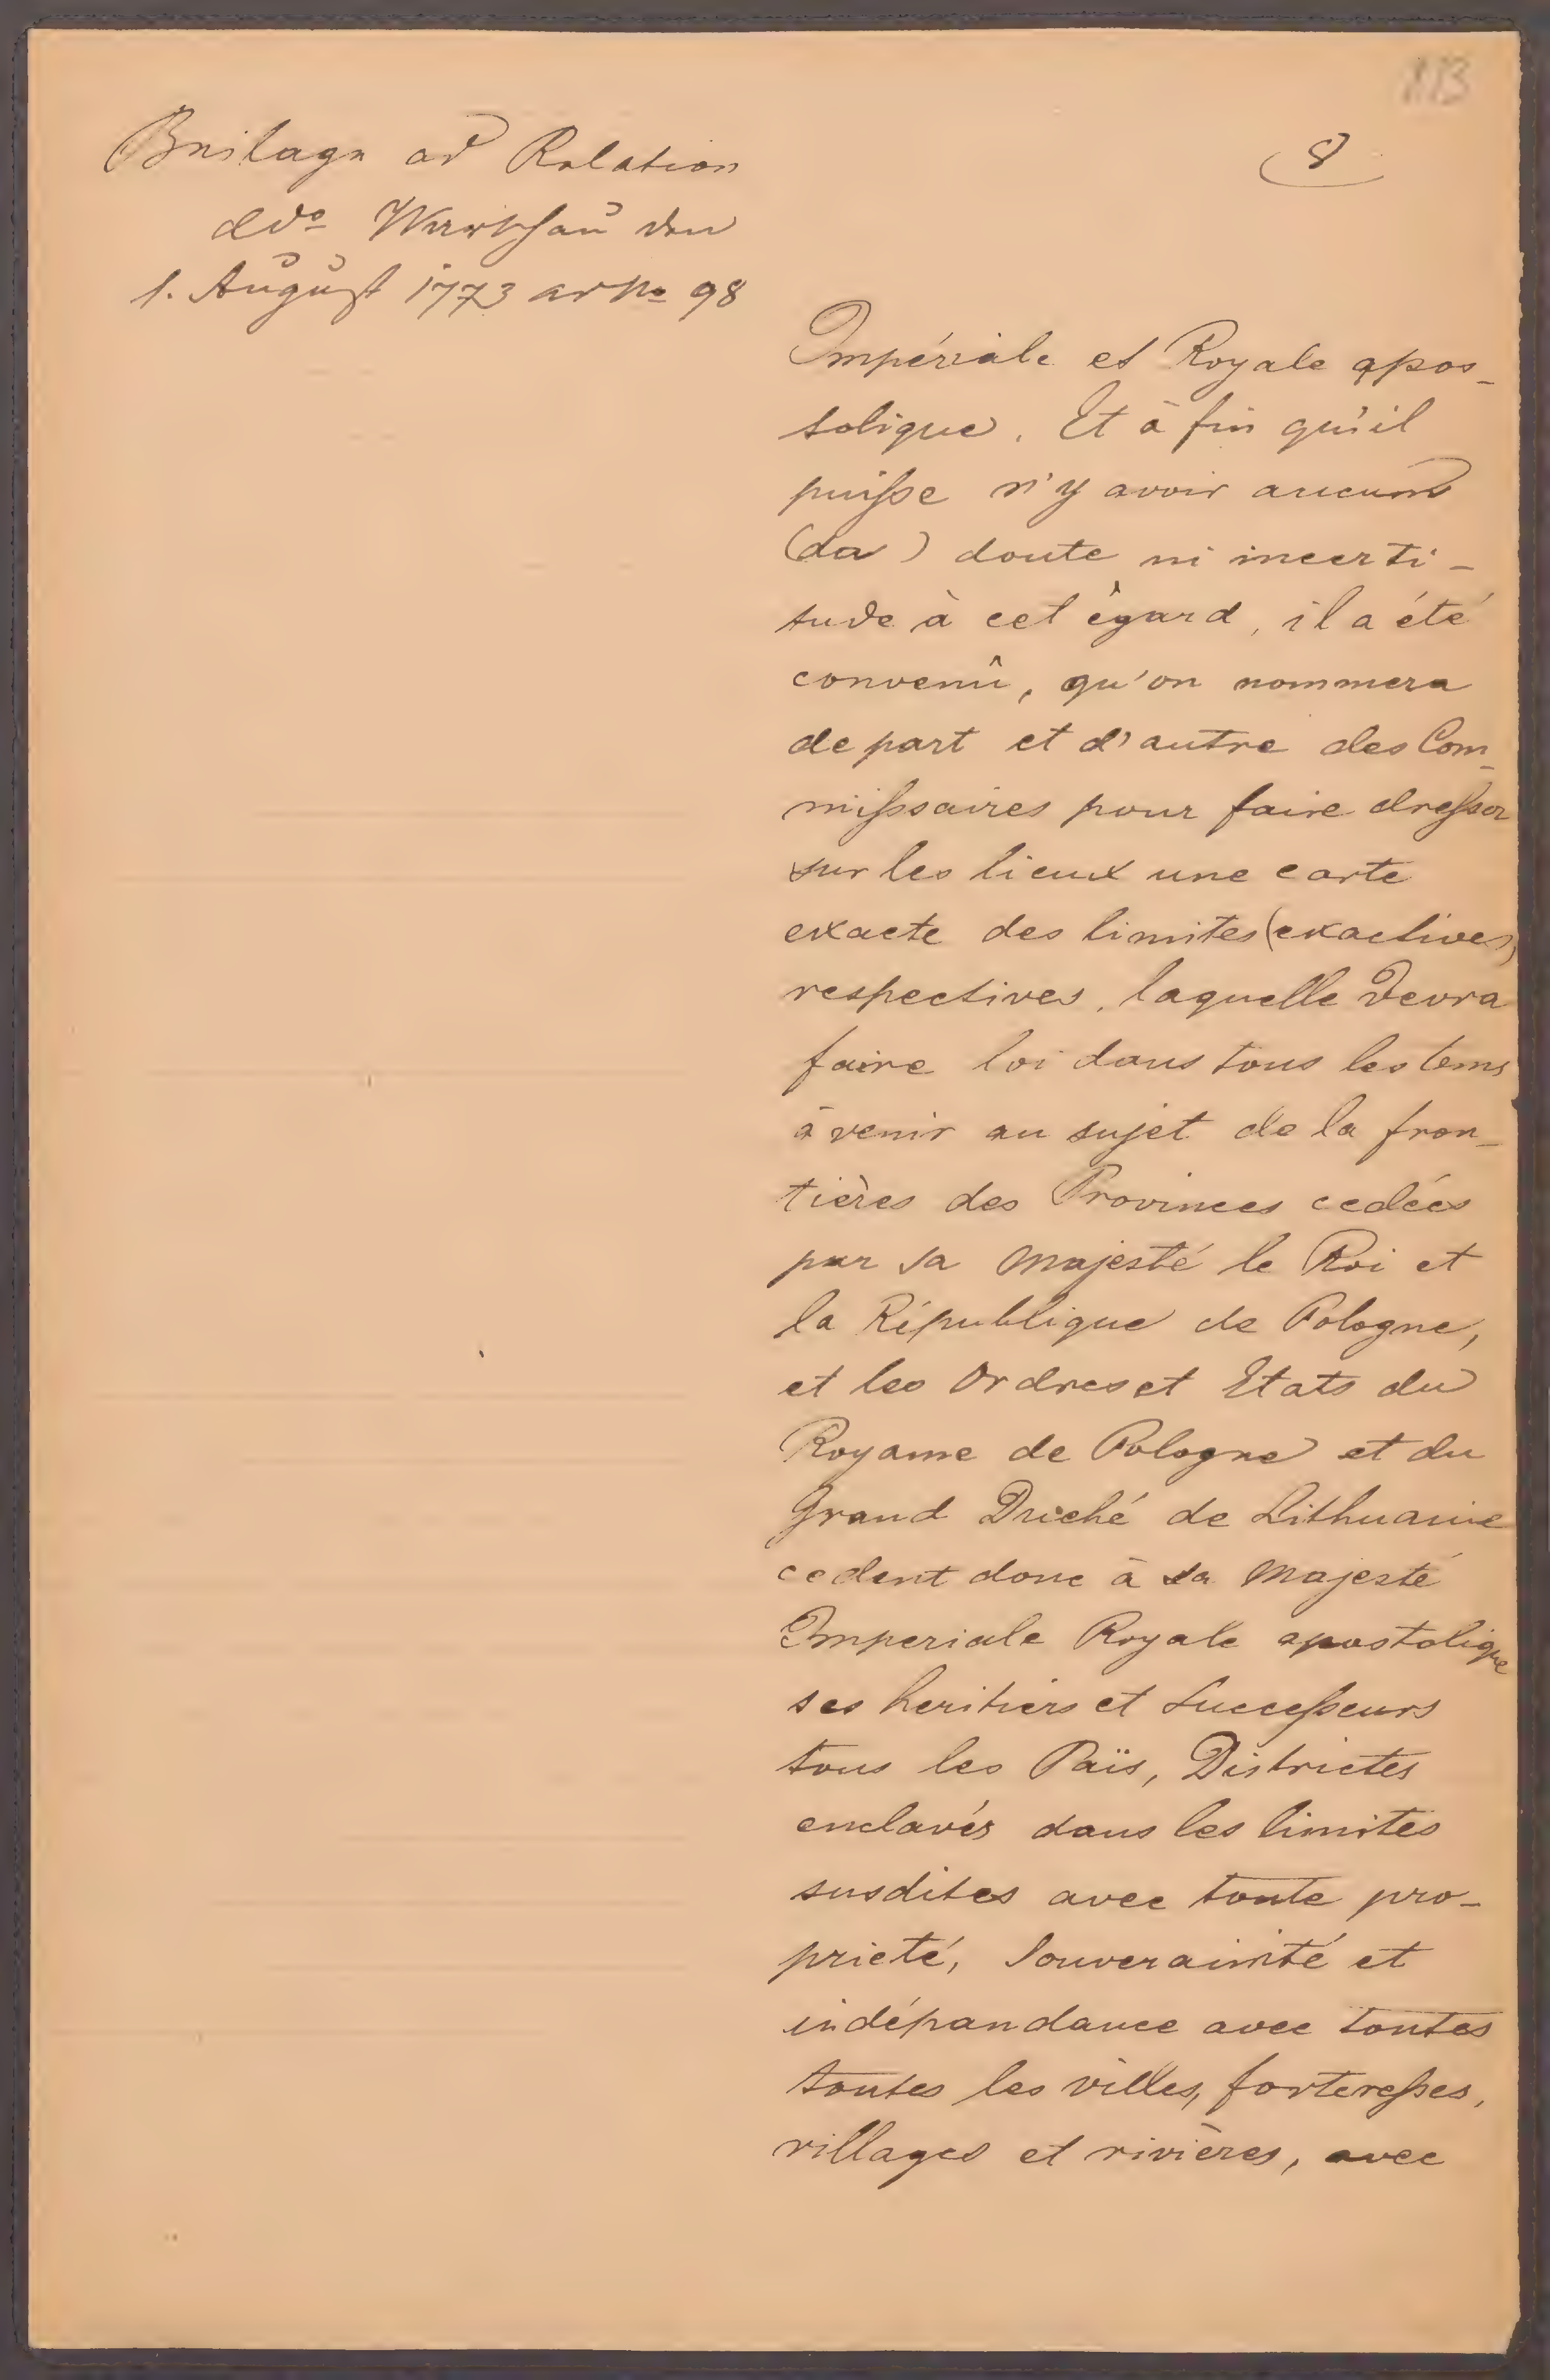 113
8
Beilage ad Relation
ddo Warschau den
1. August 1773 ad No 98
Impériale et Royale apos-
tolique. Et à fin qu'il
puisse n'y avoir aucune
(da) doute ni incerti-
tude à cet égard, il a été
convenû, qu'on nommera
de part et d'autre des Com-
missaires pour faire dresser
sur les lieux une carte
exacte des limites (exactives)
respectives, laquelle devra
faire loi dans tous les tems
à venir au sujet de la fron-
tières des Provinces cedées
par sa Majesté le Roi et
la République de Pologne,
et les Ordres et Etats du
Royame de Pologne et du
Grand Duché de Lithuanie
cedent donc à sa Majesté
Imperiale Royale apostolique
ses heritiers et Successeurs
tous les Païs, Districtes
enclavés dans les limites
susdites avec toute pro-
prieté, Souverainité et
indépandance avec toutes
toutes les villes, forteresses,
villages et rivières, avec